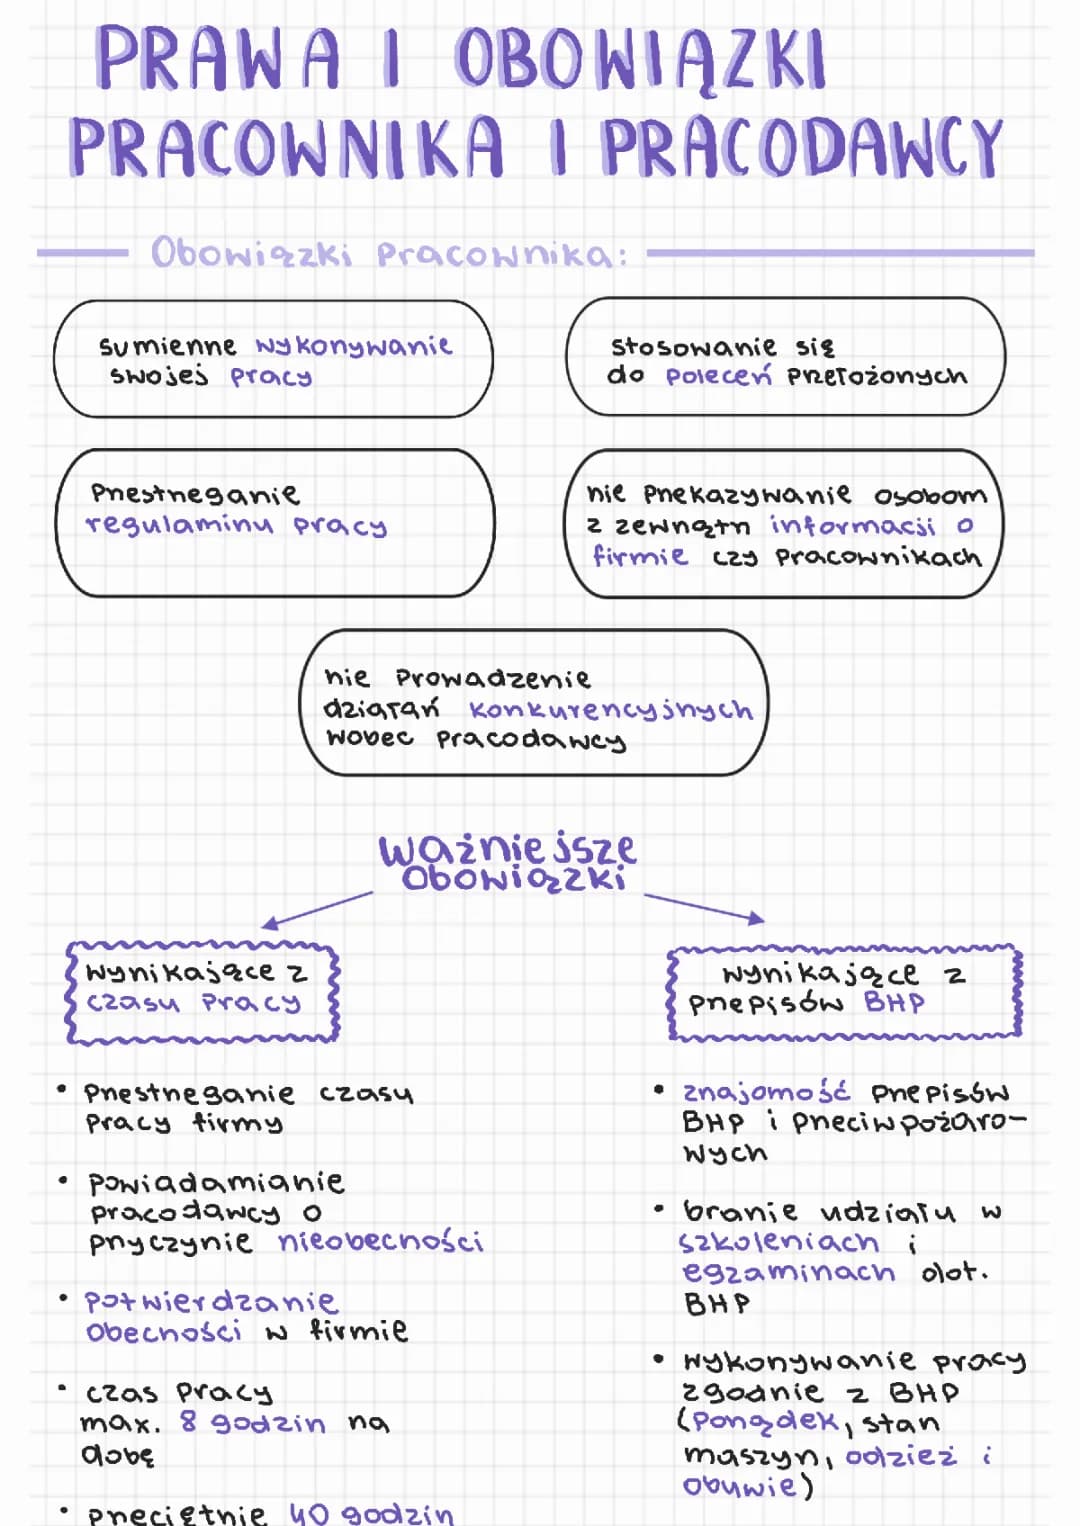 PRAWA I OBOWIĄZKI
PRACOWNIKA I PRACODAWCY
Obowiązki Pracownika:
sumienne wykonywanie
swojej pracy
stosowanie się
do poleceń przełożonych
przestrzeganie
regulaminu pracy
nie przekazywanie osobom
z zewnątrz informacji o
firmie czy pracownikach
nie prowadzenie
działań konkurencyjnych
wobec pracodawcy
ważniejsze
obowiązki
wynikające z
czasu pracy
• przestrzeganie czasu
pracy firmy
• powiadamianie
pracodawcy o
przyczynie nieobecności
• potwierdzanie
obecności w firmie
• czas pracy
max. 8 godzin na
dobę
• przeciętnie 40 godzin
wynikające z
przepisów BHP
• znajomość przepisów
BHP i przeciwpożaro-
wych
• branie udziału w
szkoleniach i
egzaminach dot.
BHP
• wykonywanie pracy
zgodnie z BHP
(porządek, stan
maszyn, odzież i
obuwie)